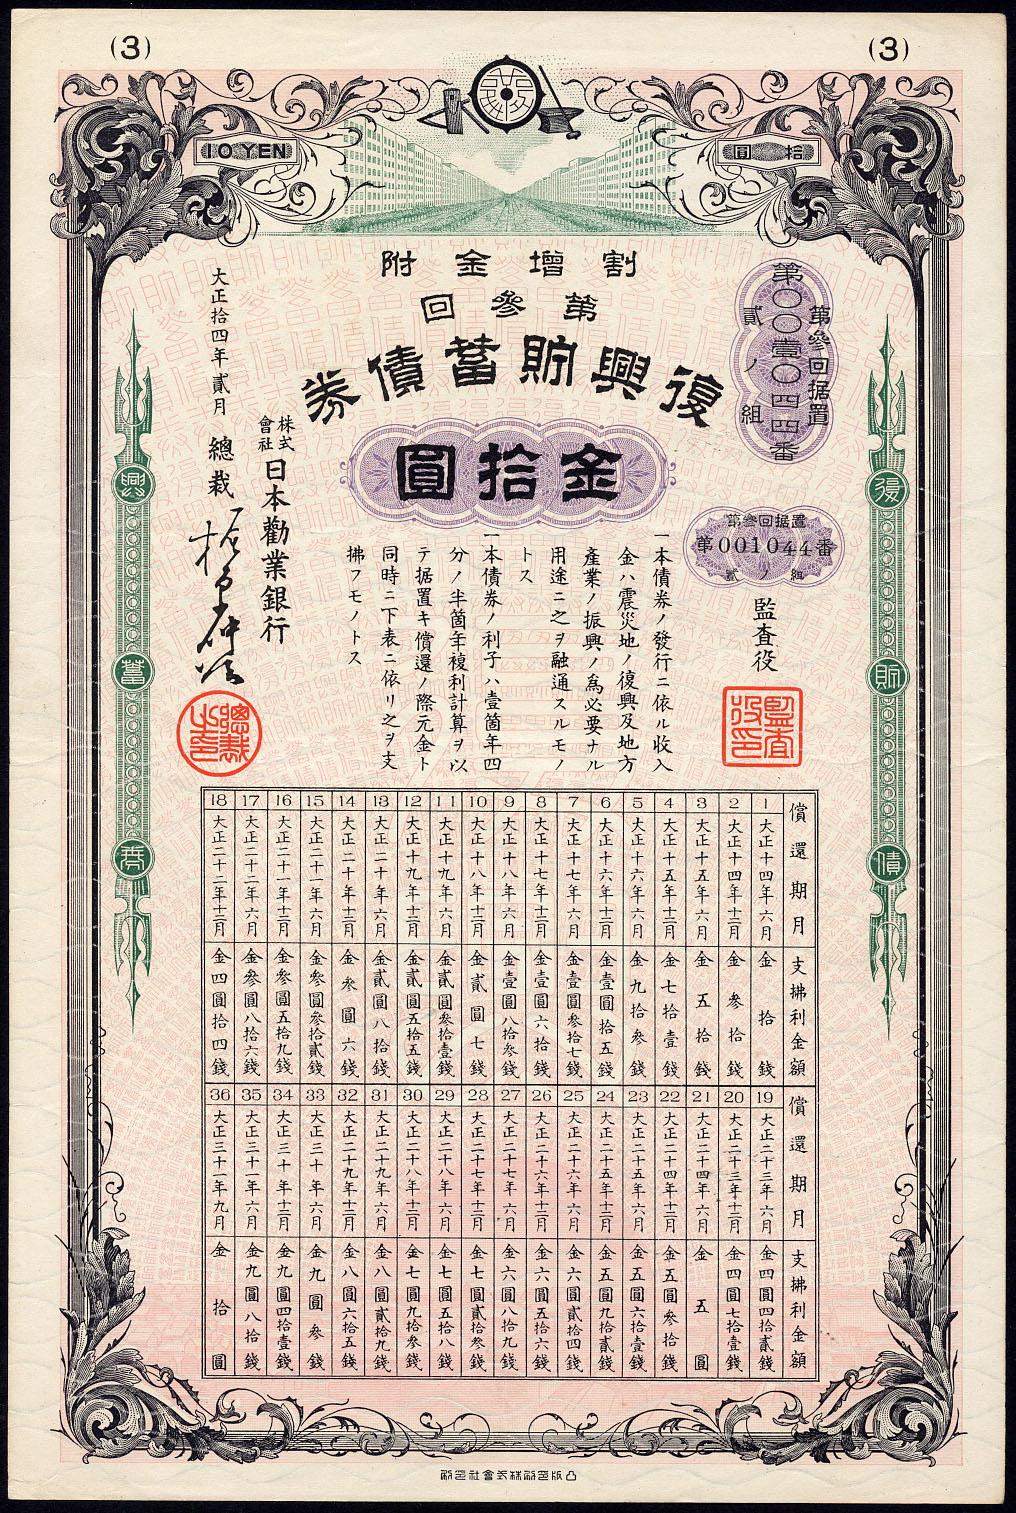 (3)
(3)
10 YEN
拾圓
割增金附
第參回
復興貯蓄債券
金拾圓
第參回据置
第〇〇壹〇四四番
貳ノ組
第參回据置
第001044番
貳ノ組
監査役
監査役印
一本債券ノ發行ニ依ル收入
金ハ震災地ノ復興及地方
產業ノ振興ノ爲必要ナル
用途ニ之ヲ融通スルモノ
トス
一本債券ノ利子ハ壹箇年四
分ノ半箇年複利計算ヲ以
テ据置キ償還ノ際元金ト
同時ニ下表ニ依リ之ヲ支
拂フモノトス
株式會社日本勸業銀行
大正拾四年貳月
總裁
總裁之印
復
興
貯
蓄
債
券
償還期月 支拂利金額
1 大正十四年六月 金拾錢
2 大正十四年十二月 金參拾錢
3 大正十五年六月 金五拾錢
4 大正十五年十二月 金七拾壹錢
5 大正十六年六月 金九拾參錢
6 大正十六年十二月 金壹圓拾五錢
7 大正十七年六月 金壹圓參拾七錢
8 大正十七年十二月 金壹圓六拾錢
9 大正十八年六月 金壹圓八拾參錢
10 大正十八年十二月 金貳圓七錢
11 大正十九年六月 金貳圓參拾壹錢
12 大正十九年十二月 金貳圓五拾五錢
13 大正二十年六月 金貳圓八拾錢
14 大正二十年十二月 金參圓六錢
15 大正二十一年六月 金參圓參拾貳錢
16 大正二十一年十二月 金參圓五拾九錢
17 大正二十二年六月 金參圓八拾六錢
18 大正二十二年十二月 金四圓拾四錢
償還期月 支拂利金額
19 大正二十三年六月 金四圓四拾貳錢
20 大正二十三年十二月 金四圓七拾壹錢
21 大正二十四年六月 金五圓
22 大正二十四年十二月 金五圓參拾錢
23 大正二十五年六月 金五圓六拾壹錢
24 大正二十五年十二月 金五圓九拾貳錢
25 大正二十六年六月 金六圓貳拾四錢
26 大正二十六年十二月 金六圓五拾六錢
27 大正二十七年六月 金六圓八拾九錢
28 大正二十七年十二月 金七圓貳拾參錢
29 大正二十八年六月 金七圓五拾八錢
30 大正二十八年十二月 金七圓九拾參錢
31 大正二十九年六月 金八圓貳拾九錢
32 大正二十九年十二月 金八圓六拾五錢
33 大正三十年六月 金九圓參錢
34 大正三十年十二月 金九圓四拾壹錢
35 大正三十一年六月 金九圓八拾錢
36 大正三十一年九月 金拾圓
凸版印刷株式會社印刷